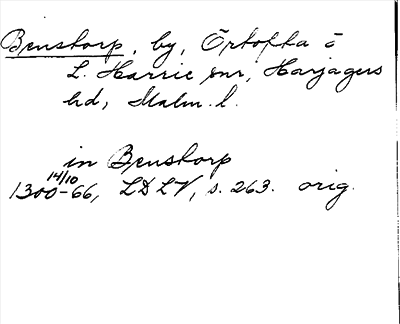 Benstorp, by, Örtofta o
L. Harrie snr, Harjagers
hd, Malm. l.
in Benstorp
14/10
1300-66, LDLV, s. 263. orig.